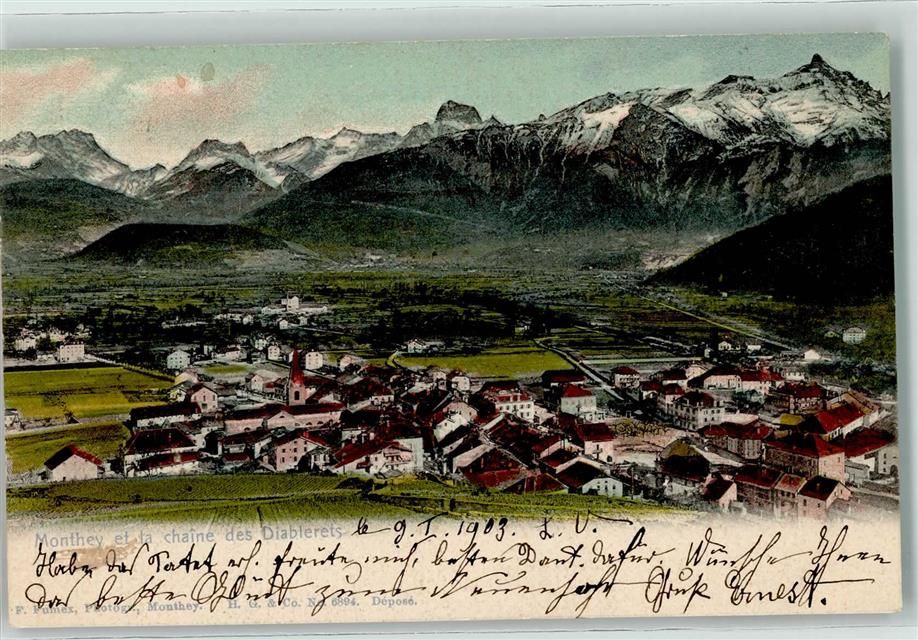 Monthey et la chaîne des Diablerets
le 9. I. 1903. L. V.
Habe das Patet erh. freute mich, besten Dank dafür, Wünsche Ihnen
das beste Glück zum Neuen Gruß Ernest.
F. Fumex, Photogr, Monthey. H. G. & Co. No 6894. Déposé.